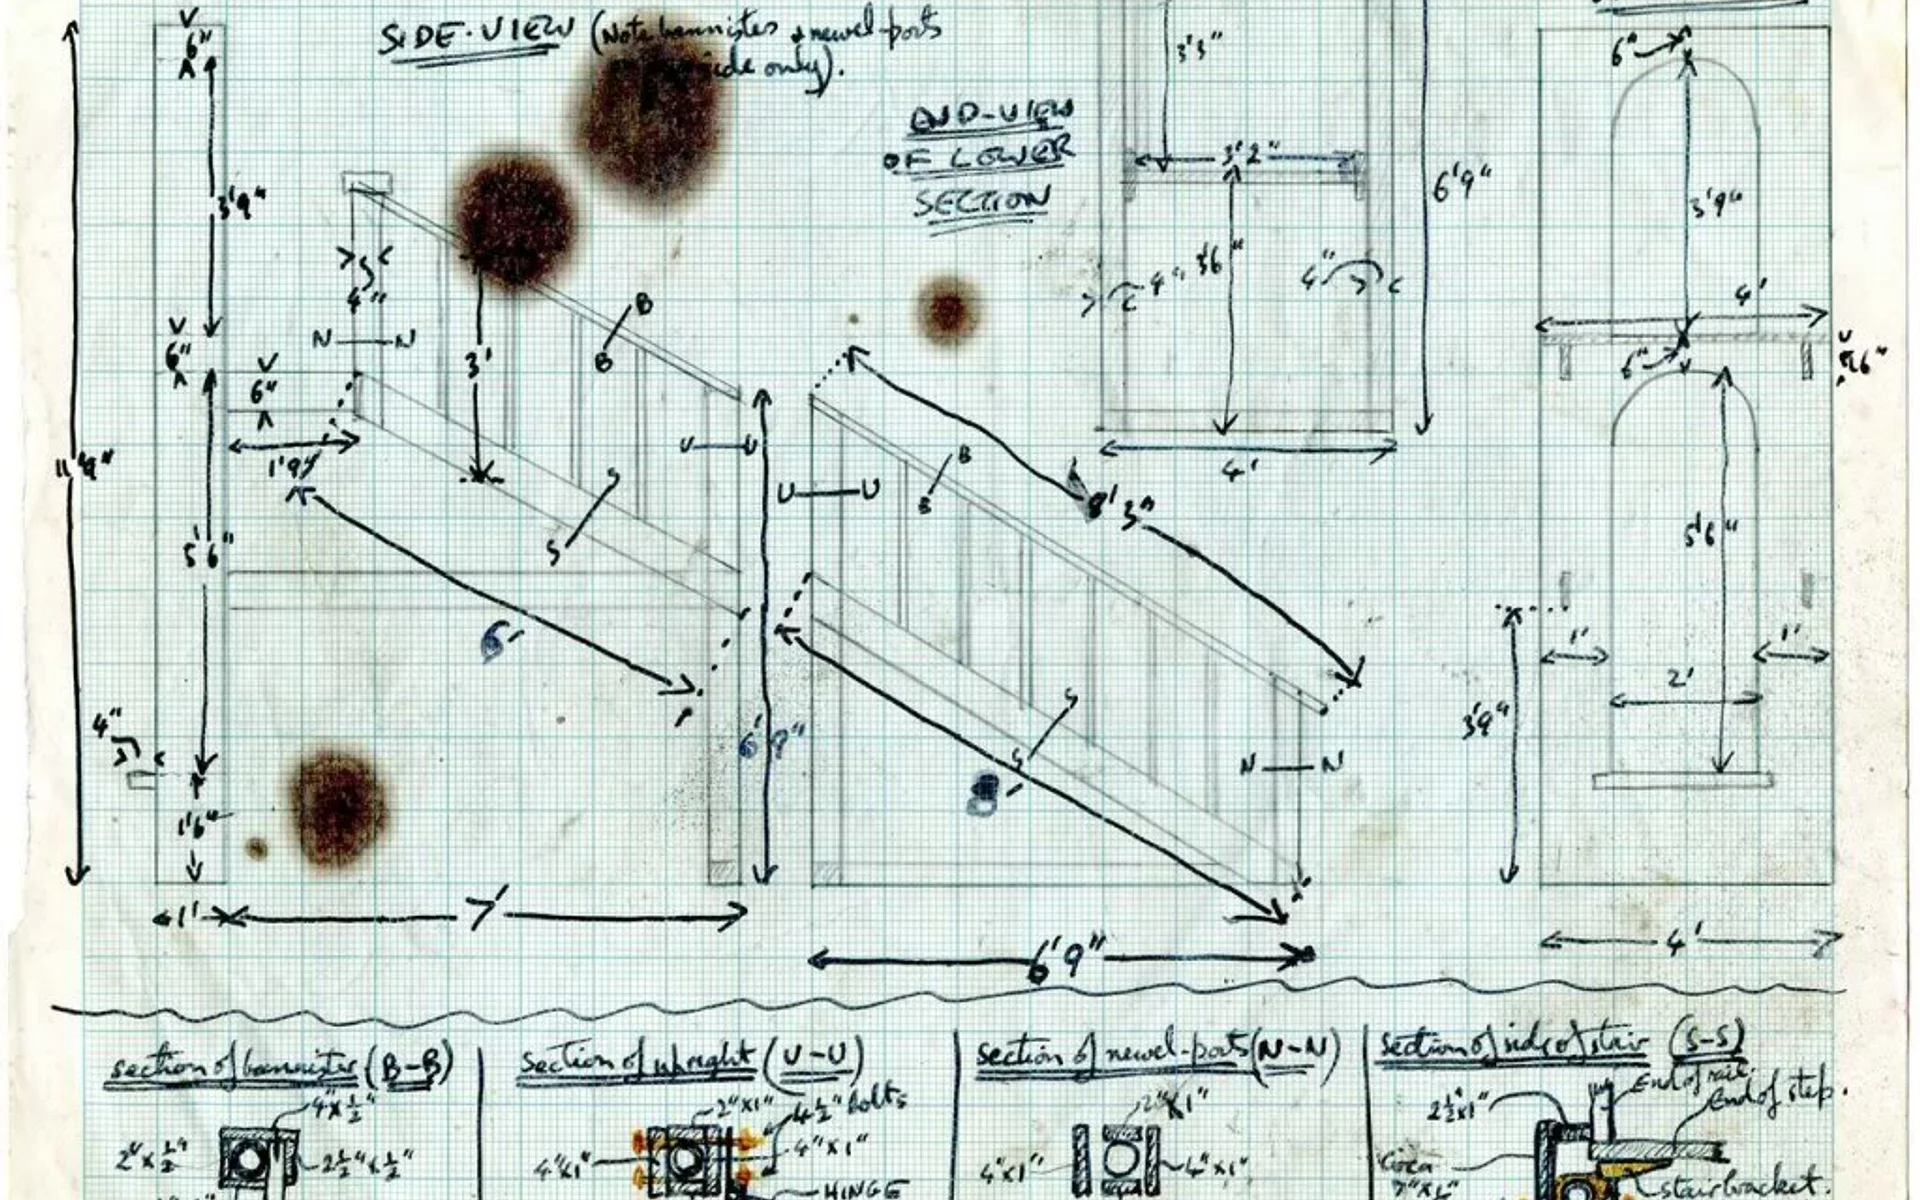 SIDE-VIEW (Note bannister & newel-posts
side only).
END-VIEW
OF LOWER
SECTION
6"
3'9"
6"
6"
1'9"
5'6"
11'9"
4"
1'6"
1'
7'
4"
N N
3'
B
B
S
S
6'
U U
6'9"
U U
B
B
8'3"
S
S
8'
N N
6'9"
3'3"
3'2"
3'6"
4"
4"
6'9"
4'
6"
3'9"
4'
6"
6"
5'6"
1'
1'
2'
3'9"
4'
section of bannister (B-B)
4"x½"
2"x½"
2½"x½"
section of upright (U-U)
2"x1"
4½" bolts
4"x1"
4"x1"
HINGE
section of newel-posts (N-N)
2"x1"
4"x1"
4"x1"
section of side of stair (S-S)
2½"x1"
End of rail.
End of step.
stair bracket.